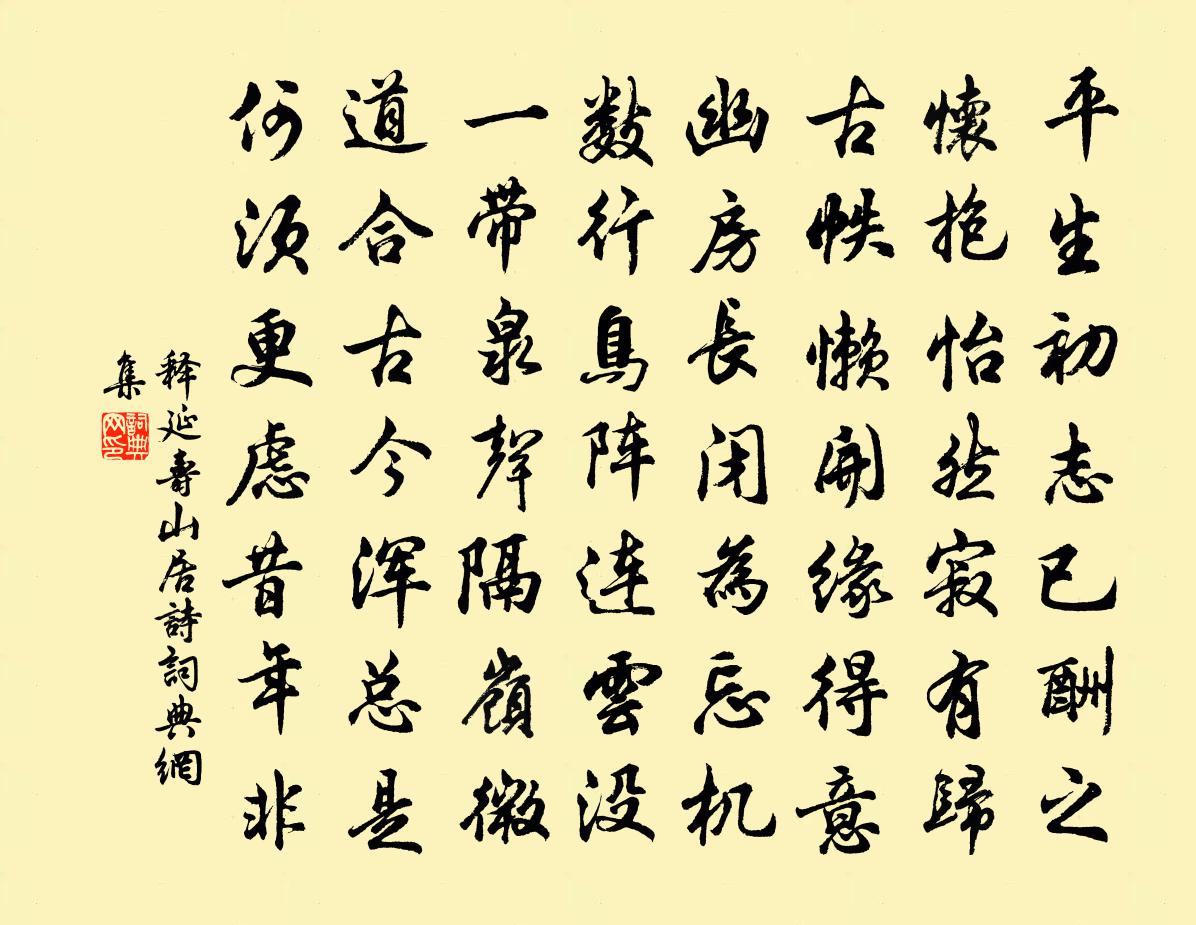 平生初志已酬之
懷抱怡然寂有歸
古帙懶開緣得意
幽房長闭為忘机
数行鳥阵连雲没
一带泉聲隔嶺微
道合古今浑总是
何须更慮昔年非
释延壽山居詩詞典網
集
詞典
网印